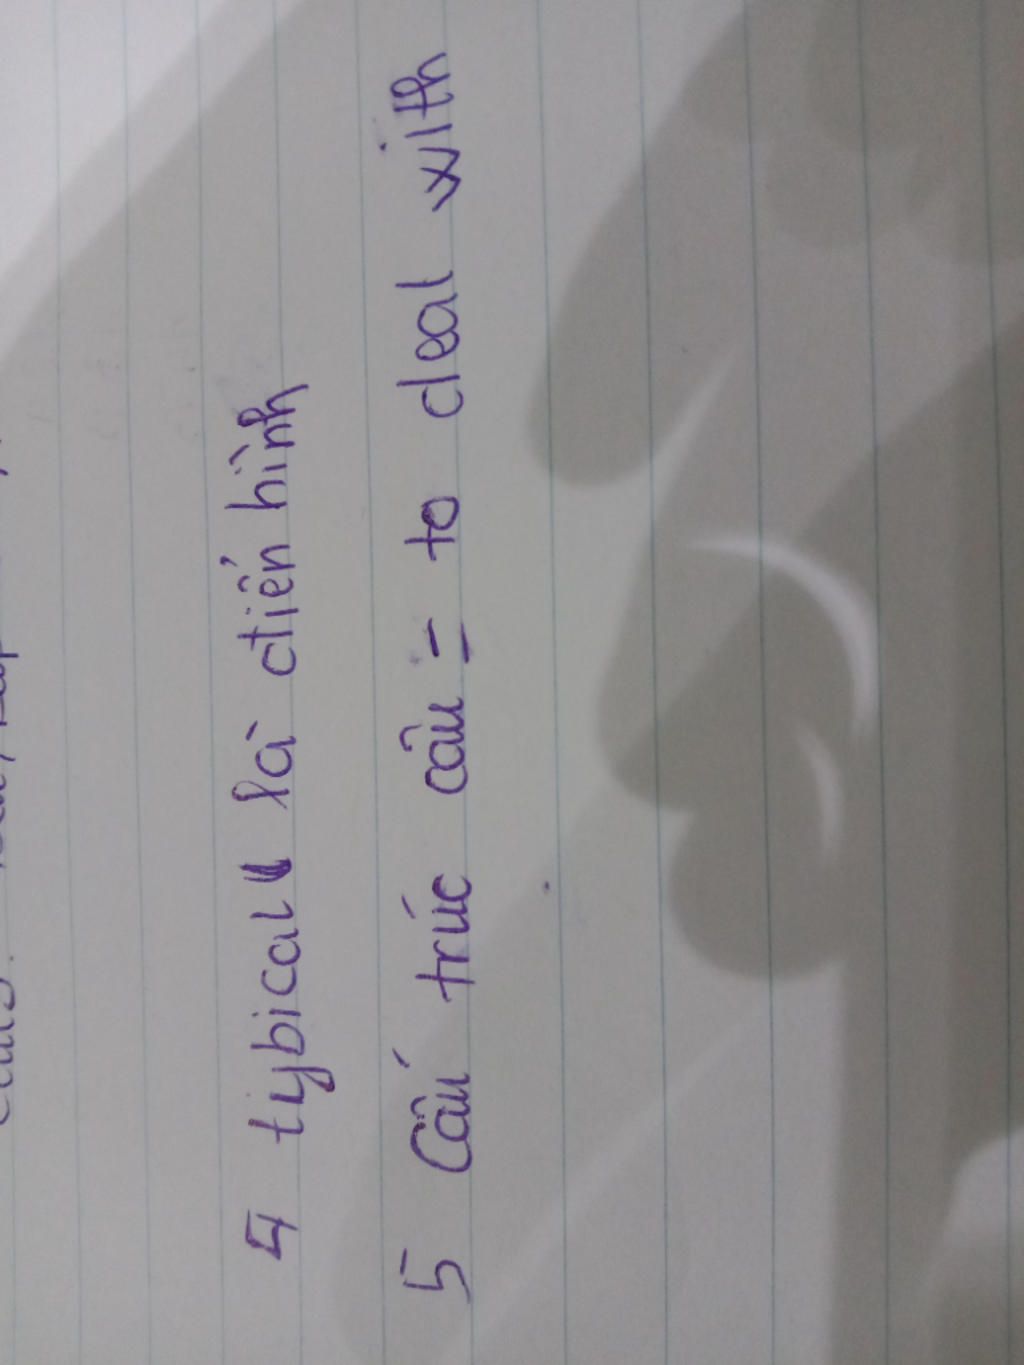 4 tybical là điển hình
5 Cấu trúc câu = to deal with